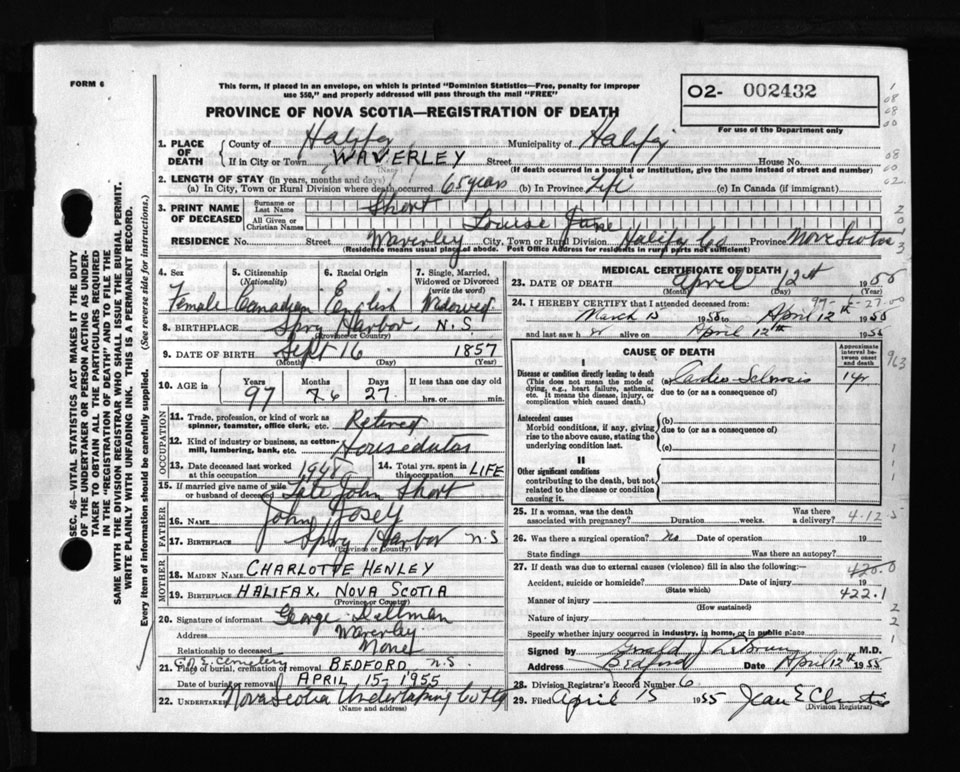 FORM 6
This form, if placed in an envelope, on which is printed "Dominion Statistics—Free, penalty for improper
use $50," and properly addressed will pass through the mail "FREE"
PROVINCE OF NOVA SCOTIA—REGISTRATION OF DEATH
O2- 002432
For use of the Department only
1. PLACE OF DEATH
County of Halifax Municipality of Halifax
If in City or Town WAVERLEY Street House No.
(Name) (If death occurred in a hospital or institution, give the name instead of street and number)
2. LENGTH OF STAY (in years, months and days)
(a) In City, Town or Rural Division where death occurred 65 years (b) In Province Life (c) In Canada (if immigrant)
3. PRINT NAME OF DECEASED
Surname or Last Name Short
All Given or Christian Names Louise Jane
RESIDENCE No. Street Waverley City, Town or Rural Division Halifax Co Province Nova Scotia
(Residence means usual place of abode. Post Office Address for residents in rural parts not sufficient)
4. Sex
Female
5. Citizenship (Nationality)
Canadian
6. Racial Origin
English
7. Single, Married, Widowed or Divorced (write the word)
Widowed
8. BIRTHPLACE Spry Harbor, N.S.
(Province or Country)
9. DATE OF BIRTH Sept 16 1857
(Month) (Day) (Year)
10. AGE in
Years 97
Months 6
Days 27
If less than one day old
hrs. or min.
OCCUPATION
11. Trade, profession, or kind of work as spinner, teamster, office clerk, etc. Retired
12. Kind of industry or business, as cotton-mill, lumbering, bank, etc.
13. Date deceased last worked at this occupation 1948
14. Total yrs. spent in this occupation LIFE
15. If married give name of wife or husband of deceased Late John Short
FATHER
16. NAME John Josey
17. BIRTHPLACE Spry Harbor N.S
(Province or Country)
MOTHER
18. MAIDEN NAME CHARLOTTE HENLEY
19. BIRTHPLACE HALIFAX, NOVA SCOTIA
(Province or Country)
20. Signature of informant George
Address Waverley
Relationship to deceased None
21. Place of burial, cremation or removal Cemetery BEDFORD, N.S.
Date of burial or removal APRIL 15-1955
22. UNDERTAKER Nova Scotia Undertaking Co Ltd
(Name and address)
MEDICAL CERTIFICATE OF DEATH
23. DATE OF DEATH April 12th 1955
(Month) (Day) (Year)
97-6-27-00
24. I HEREBY CERTIFY that I attended deceased from:
March 13 1955 to April 12th 1955
and last saw h er alive on April 12th 1955
CAUSE OF DEATH
Approximate interval between onset and death
I
Disease or condition directly leading to death
(This does not mean the mode of dying, e.g., heart failure, asthenia, etc. It means the disease, injury, or complication which caused death.)
(a) Cardio-Sclerosis 1 yr
due to (or as a consequence of)
Antecedent causes
Morbid conditions, if any, giving rise to the above cause, stating the underlying condition last.
(b)
due to (or as a consequence of)
(c)
II
Other significant conditions
contributing to the death, but not related to the disease or condition causing it.
25. If a woman, was the death associated with pregnancy? Duration weeks. Was there a delivery?
4-12-5
26. Was there a surgical operation? No Date of operation 19
State findings Was there an autopsy?
27. If death was due to external causes (violence) fill in also the following:—
420.0
Accident, suicide or homicide? Date of injury 19
(State which)
422.1
Manner of injury
(How sustained)
Nature of injury
Specify whether injury occurred in industry, in home, or in public place
Signed by M.D.
Address Bedford Date April 12th 1955
28. Division Registrar's Record Number 6
29. Filed April 15 1955 Jean E Christie
(Division Registrar)
SEC. 46—VITAL STATISTICS ACT MAKES IT THE DUTY
OF THE UNDERTAKER OR PERSON ACTING AS UNDER-
TAKER TO OBTAIN ALL THE PARTICULARS REQUIRED
IN THE "REGISTRATION OF DEATH" AND TO FILE THE
SAME WITH THE DIVISION REGISTRAR WHO SHALL ISSUE THE BURIAL PERMIT.
WRITE PLAINLY WITH UNFADING INK. THIS IS A PERMANENT RECORD.
Every item of information should be carefully supplied. (See reverse side for instructions.)